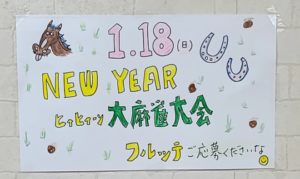 1.18(日)
NEW YEAR
ヒィヒィ〜ン 大麻雀大会
フルッテご応募くださいな